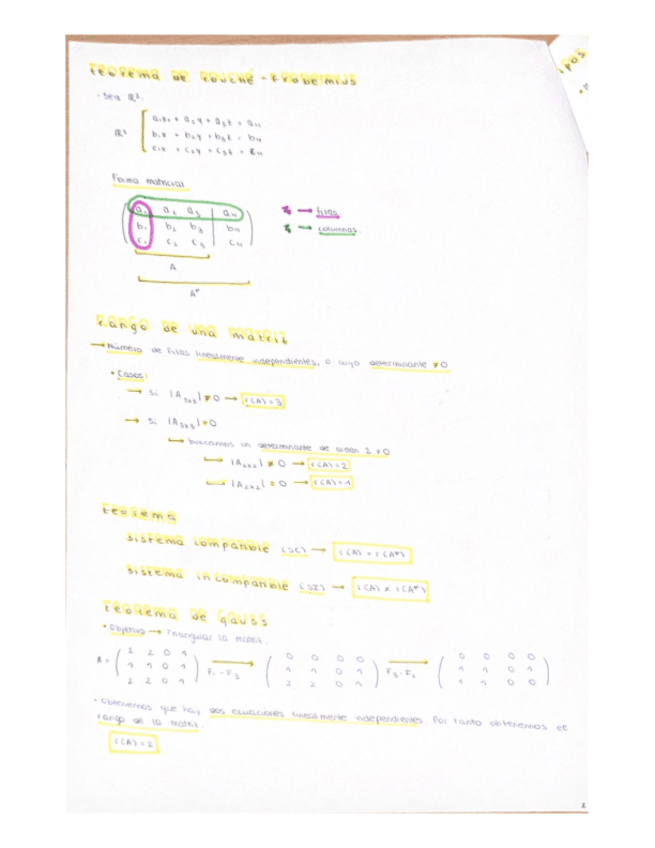 Teorema de Rouché - Frobenius
• Sea R³:
a₁x + a₂y + a₃z = a₄
R³ b₁x + b₂y + b₃z = b₄
c₁x + c₂y + c₃z = c₄
Forma matricial
a₁ a₂ a₃ | a₄ → filas
b₁ b₂ b₃ | b₄ → columnas.
c₁ c₂ c₃ | c₄
A
A*
rango de una matriz
→ Número de filas linealmente independientes, o cuyo determinante ≠ 0
• Casos:
→ Si |A₃ₓ₃| ≠ 0 → r(A) = 3
→ Si |A₃ₓ₃| = 0
↳ buscamos un determinante de orden 2 ≠ 0
↳ |A₂ₓ₂| ≠ 0 → r(A) = 2
↳ |A₂ₓ₂| = 0 → r(A) = 1
teorema
sistema compatible (SC) → r(A) = r(A*)
sistema incompatible (SI) → r(A) ≠ r(A*)
teorema de gauss
• Objetivo → Triangular la matriz.
2 2 0 1 0 0 0 0 0 0 0 0
A = 1 1 0 1 F₁ - F₃ 1 1 0 1 F₃ - F₂ 1 1 0 1
2 2 0 1 2 2 0 1 1 1 0 0
• Obtenemos que hay dos ecuaciones linealmente independientes. Por tanto obtenemos el
rango de la matriz.
r(A) = 2